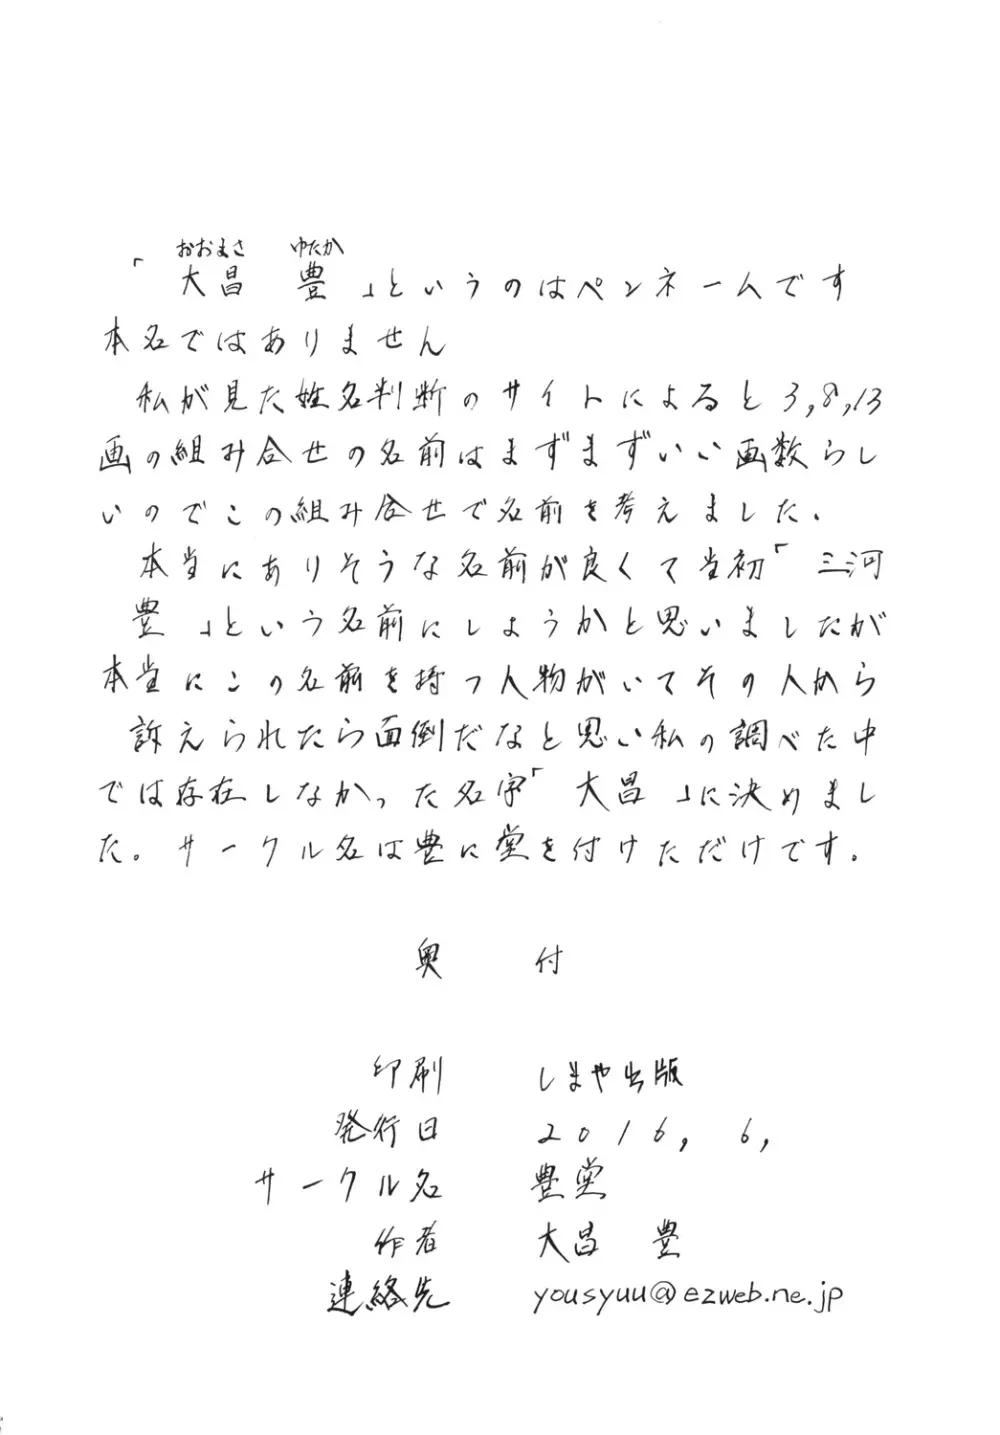 おおまさ ゆたか
「大昌 豊」というのはペンネームです
本名ではありません
私が見た姓名判断のサイトによると3,8,13
画の組み合せの名前はまずまずいい画数らし
いのでこの組み合せで名前を考えました.
本当にありそうな名前が良くて当初「三河
豊」という名前にしようかと思いましたが
本当にこの名前を持つ人物がいてその人から
訴えられたら面倒だなと思い私の調べた中
では存在しなかった名字「大昌」に決めまし
た。サークル名は豊に堂を付けただけです.
奥 付
印刷 しまや出版
発行日 2016, 6,
サークル名 豊堂
作者 大昌 豊
連絡先 yousyuu@ezweb.ne.jp